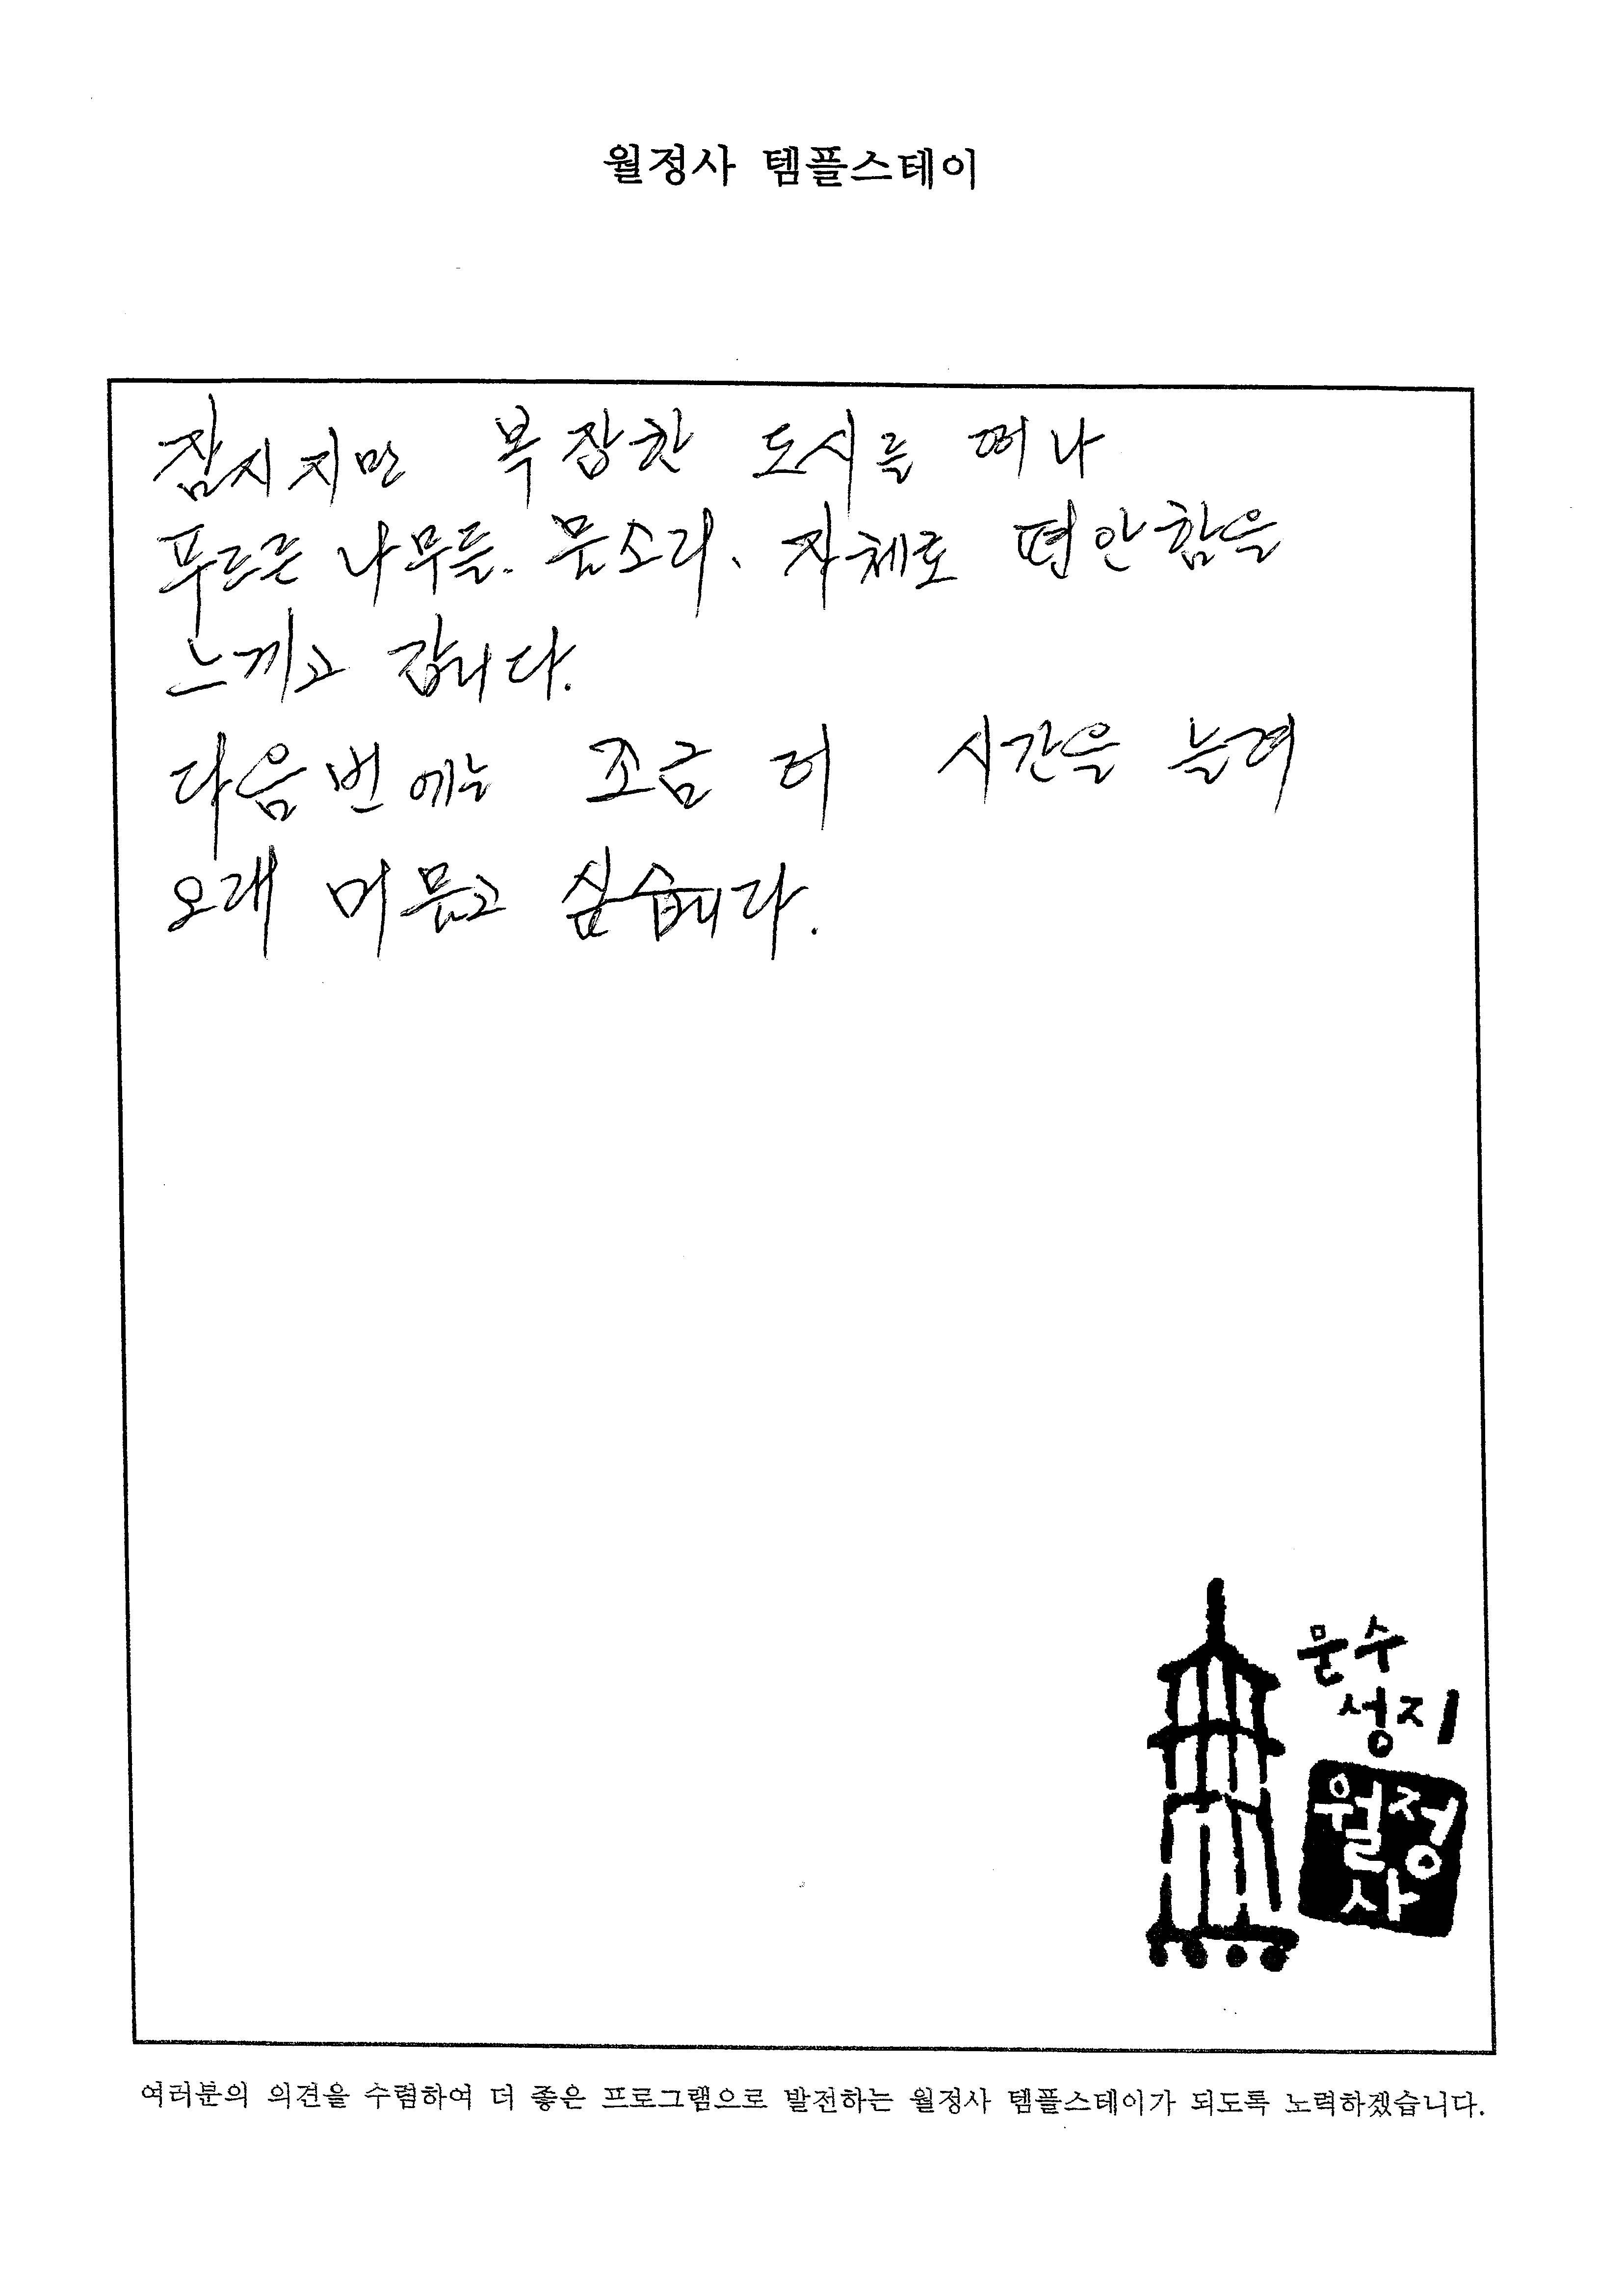 월정사 템플스테이
잠시지만 복잡한 도시를 떠나
푸르른 나무들. 물소리, 자체로 편안함을
느끼고 갑니다.
다음번에는 조금 더 시간을 늘려
오래 머물고 싶습니다.
문수
성지
월정
사
여러분의 의견을 수렴하여 더 좋은 프로그램으로 발전하는 월정사 템플스테이가 되도록 노력하겠습니다.